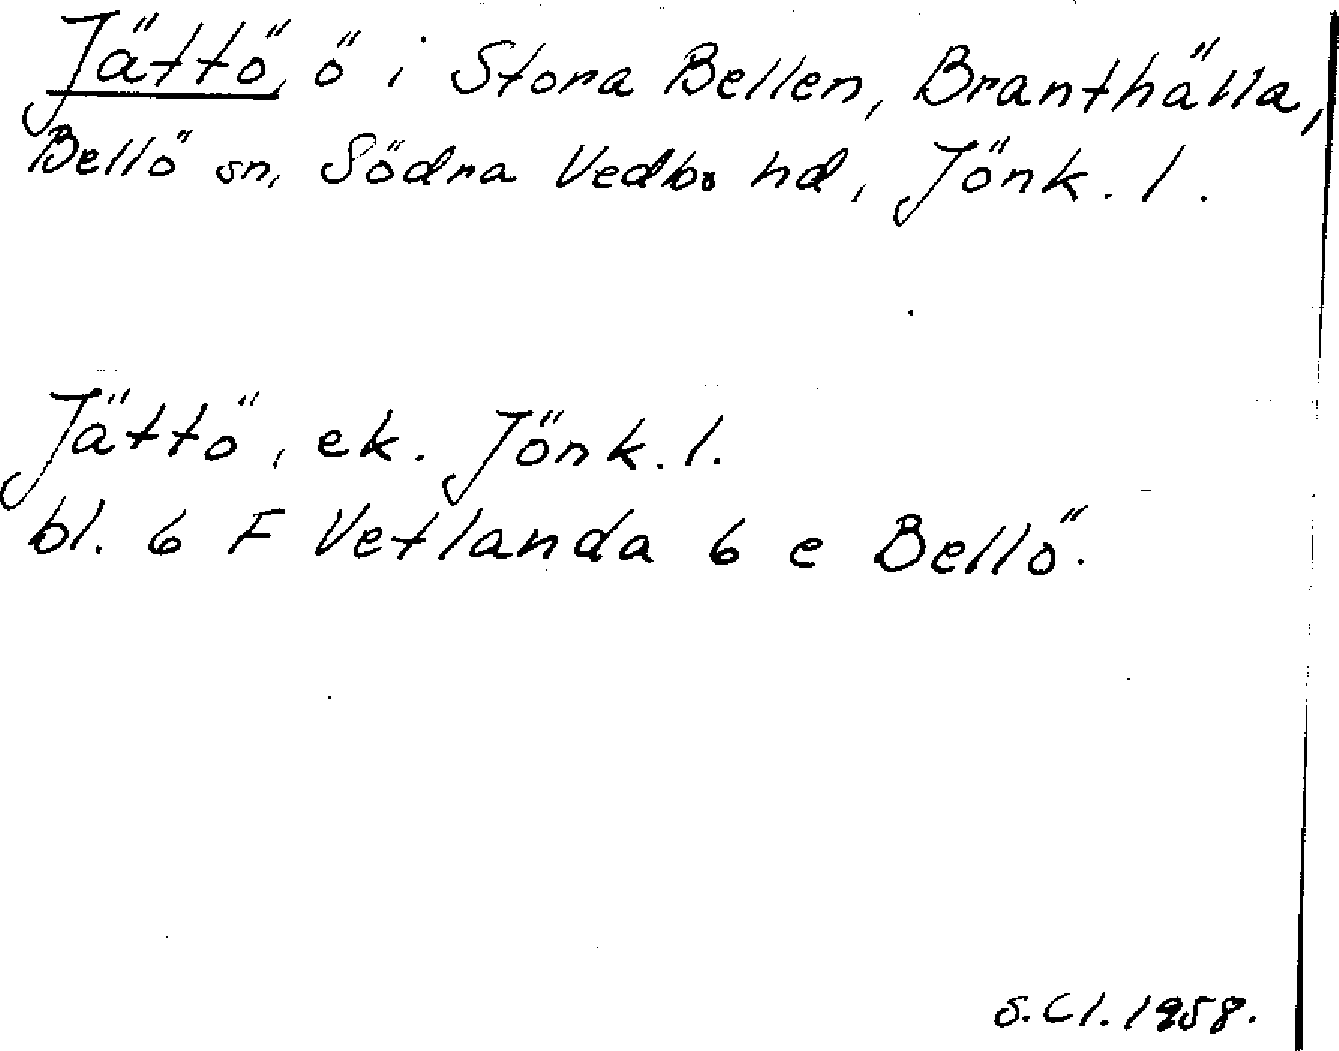 Jättö, ö i Stora Bellen, Branthälla,
Bellö sn, Södra Vedbo hd, Jönk. l.
Jättö, ek. Jönk. l.
bl. 6 F Vetlanda 6 e Bellö.
S. Cl. 1958.